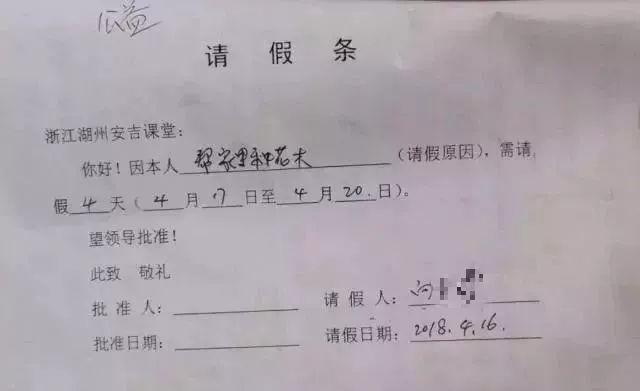 请假条
浙江湖州安吉课堂：
你好！因本人 帮家里种苗木 （请假原因），需请
假 4 天（ 4 月 17 日至 4 月 20. 日）。
望领导批准！
此致 敬礼
批准人： 请假人： 向
批准日期： 请假日期： 2018.4.16.